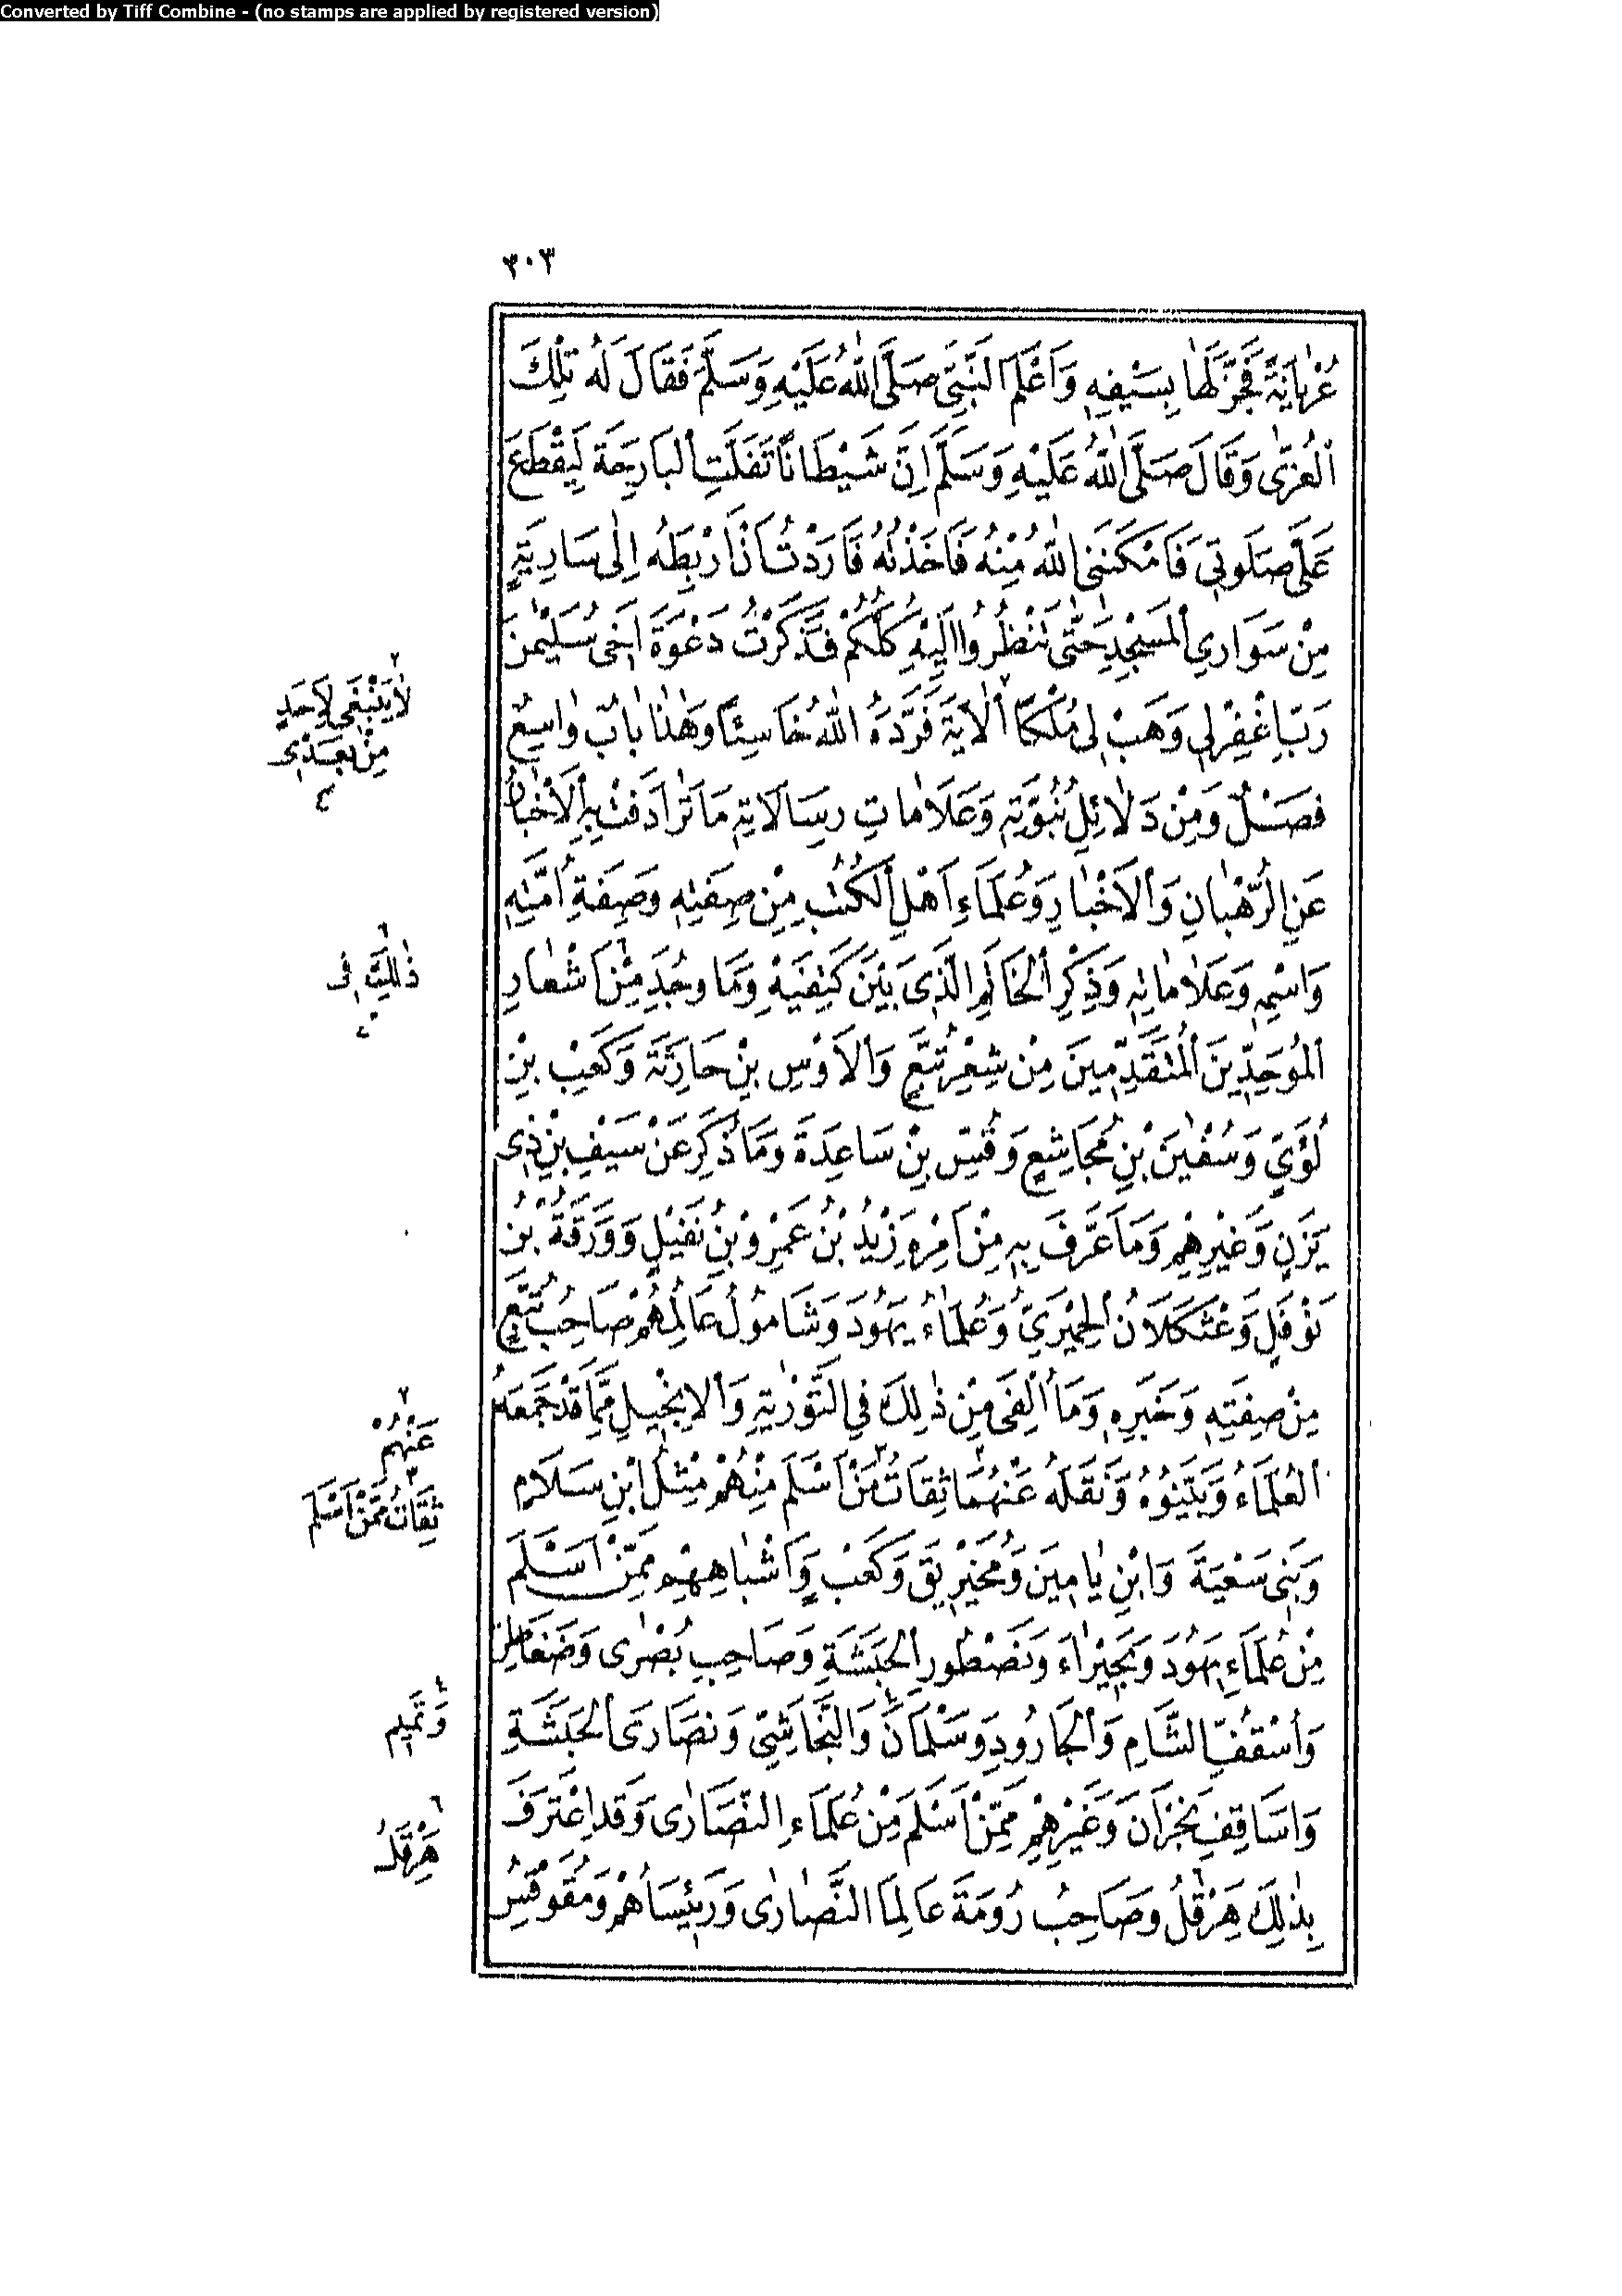 Converted by Tiff Combine - (no stamps are applied by registered version)
٣٠٣
عُرْيَانَةً فَجَزَّلَهَا بِسَيْفِهِ وَاَعْلَمَ النَّبِيَّ صَلَّى اللّٰهُ عَلَيْهِ وَسَلَّمَ فَقَالَ لَهُ تِلْكَ
الْعُزّٰى وَقَالَ صَلَّى اللّٰهُ عَلَيْهِ وَسَلَّمَ اِنَّ شَيْطَانًا تَفَلَّتَ الْبَارِحَةَ لِيَقْطَعَ
عَلَيَّ صَلَوتِي فَاَمْكَنَنِي اللّٰهُ مِنْهُ فَاَخَذْتُهُ فَاَرَدْتُ اَنْ اَرْبِطَهُ اِلٰى سَارِيَةٍ
مِنْ سَوَارِي الْمَسْجِدِ حَتّٰى تَنْظُرُوا اِلَيْهِ كُلُّكُمْ فَذَكَرْتُ دَعْوَةَ اَخِي سُلَيْمٰنَ
رَبِّ اغْفِرْ لِي وَهَبْ لِي مُلْكًا ٢ الْاٰيَةَ فَرَدَّهُ اللّٰهُ خَاسِئًا وَهٰذَا بَابٌ وَاسِعٌ
٢ لَا يَنْبَغِي لِاَحَدٍ
مِنْ بَعْدِي
فَصْلٌ وَمِنْ دَلَائِلِ نُبُوَّتِهِ وَعَلَامَاتِ رِسَالَاتِهِ مَا تَرَادَفَتْ بِهِ الْاَخْبَارُ
عَنِ الرُّهْبَانِ وَالْاَحْبَارِ وَعُلَمَاءِ اَهْلِ الْكُتُبِ مِنْ صِفَتِهِ وَصِفَةِ اُمَّتِهِ
وَاسْمِهِ وَعَلَامَاتِهِ وَذِكْرِ الْخَاتَمِ الَّذِي بَيْنَ كَتِفَيْهِ وَمَا وُجِدَ مِنْ اَشْعَارِ
٦ ذٰلِكَ فِي
الْمُوَحِّدِينَ الْمُتَقَدِّمِينَ مِنْ شِعْرِ تُبَّعٍ وَالْاَوْسِ بْنِ حَارِثَةَ وَكَعْبِ بْنِ
لُؤَيٍّ وَسُفْيٰنَ بْنِ مُجَاشِعٍ وَقُسِّ بْنِ سَاعِدَةَ وَمَا ذُكِرَ عَنْ سَيْفِ بْنِ ذِي
يَزَنٍ وَغَيْرِهِمْ وَمَا عَرَّفَ بِهِ مِنْ اَمْرِهِ زَيْدُ بْنُ عَمْرِو بْنِ نُفَيْلٍ وَوَرَقَةُ بْنُ
نَوْفَلٍ وَعَثْكَلَانُ الْحِمْيَرِيُّ وَعُلَمَاءُ يَهُودَ وَشَامُولُ عَالِمُهُمْ صَاحِبُ تُبَّعٍ
مِنْ صِفَتِهِ وَخَبَرِهِ وَمَا اُلْفِيَ مِنْ ذٰلِكَ فِي التَّوْرٰيةِ وَالْاِنْجِيلِ مِمَّا قَدْ جَمَعَهُ
الْعُلَمَاءُ وَبَيَّنُوهُ وَنَقَلَهُ عَنْهُمَا ثِقَاتُ مَنْ اَسْلَمَ مِنْهُمْ مِثْلُ ابْنِ سَلَامٍ
٢ عَنْهُمْ
٣ ثِقَاتٌ مِمَّنْ اَسْلَمَ
وَبَنِي سَعْيَةَ وَابْنِ يَامِينَ وَمُخَيْرِيقَ وَكَعْبٍ وَاَشْبَاهِهِمْ مِمَّنْ اَسْلَمَ
مِنْ عُلَمَاءِ يَهُودَ وَبَحِيرَاءَ وَنَصْطُورِ الْحَبَشَةِ وَصَاحِبِ بُصْرٰى وَضَغَاطِرَ
وَاُسْقُفِّ الشَّامِ وَالْجَارُودِ وَسَلْمَانَ ٤ وَالنَّجَاشِيِّ وَنَصَارَى الْحَبَشَةِ
٤ وَتَمِيمٍ
وَاَسَاقِفِ نَجْرَانَ وَغَيْرِهِمْ مِمَّنْ اَسْلَمَ مِنْ عُلَمَاءِ النَّصَارٰى وَقَدِ اعْتَرَفَ
بِذٰلِكَ هِرَقْلُ وَصَاحِبُ رُومَةَ عَالِمَا النَّصَارٰى وَرَئِيسَاهُمْ وَمُقَوْقِسُ
٦ هِرَقْلُ